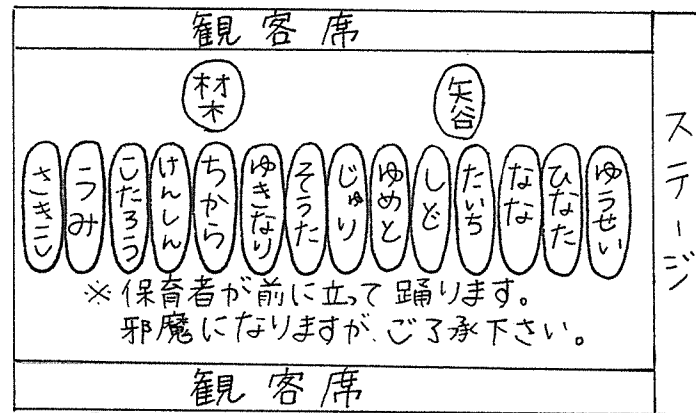 観客席
材木
矢谷
ステージ
さきこ
うみ
こたろう
けんしん
ちから
ゆきなり
そうた
じゅり
ゆめと
しど
たいち
なな
ひなた
ゆうせい
※保育者が前に立って踊ります。
邪魔になりますが、ご了承下さい。
観客席